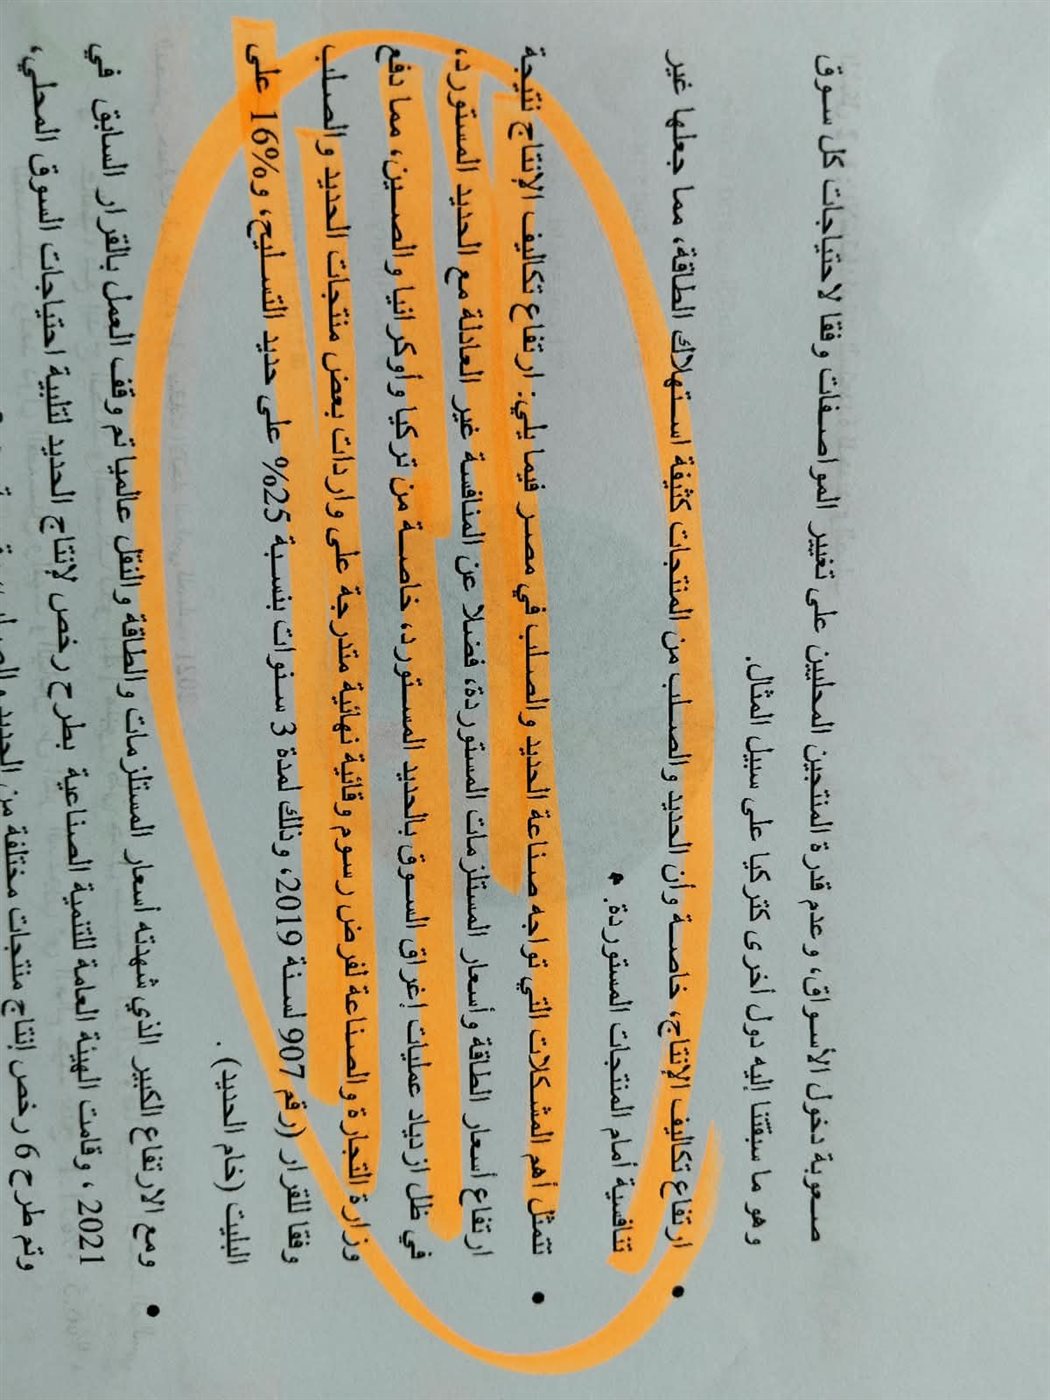 صعوبة دخول الأسواق، وعدم قدرة المنتجين المحليين على تغيير المواصفات وفقا لاحتياجات كل سوق
وهو ما سبقتنا إليه دول أخرى كتركيا على سبيل المثال.
• ارتفاع تكاليف الإنتاج، خاصة وأن الحديد والصلب من المنتجات كثيفة استهلاك الطاقة، مما جعلها غير
تنافسية أمام المنتجات المستوردة.
• تتمثل أهم المشكلات التي تواجه صناعة الحديد والصلب في مصر فيما يلي: ارتفاع تكاليف الإنتاج نتيجة
ارتفاع أسعار الطاقة وأسعار المستلزمات المستوردة، فضلا عن المنافسة غير العادلة مع الحديد المستورد،
في ظل ازدياد عمليات إغراق السوق بالحديد المستورد، خاصة من تركيا وأوكرانيا والصين، مما دفع
وزارة التجارة والصناعة لفرض رسوم وقائية نهائية متدرجة على واردات بعض منتجات الحديد والصلب
وفقا للقرار (رقم 907 لسنة 2019، وذلك لمدة 3 سنوات بنسبة 25% على حديد التسليح، و16% على
البليت (خام الحديد) .
• ومع الارتفاع الكبير الذي شهدته أسعار المستلزمات والطاقة والنقل عالميا تم وقف العمل بالقرار السابق في
2021 ، وقامت الهيئة العامة للتنمية الصناعية بطرح رخص لإنتاج الحديد لتلبية احتياجات السوق المحلي،
وتم طرح 6 رخص إنتاج منتجات مختلفة من الحديد والصلب